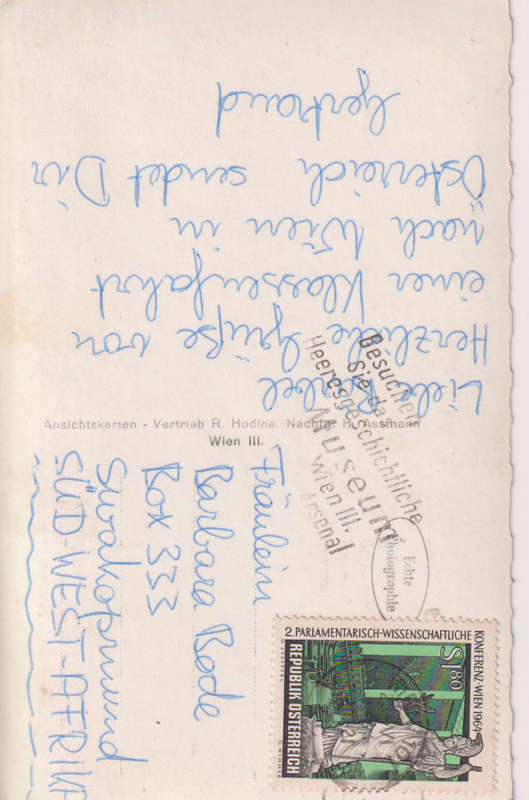 Liebe Bärbel
Herzliche Grüße von
einer Klassenfahrt
nach Wien in
Österreich sendet Dir
Gertraud
Ansichtskarten - Vertrieb R. Hodina. Nachflg. H. Assmann
Wien III.
Besuchen
sie das
Heeresgeschichtliche
Museum
Wien III.
Arsenal
Echte
Photographie
Fräulein
Barbara Bode
Box 333
Swakopmund
SÜD-WEST-AFRIKA
2. PARLAMENTARISCH-WISSENSCHAFTLICHE
KONFERENZ·WIEN 1964
S 1·80
REPUBLIK ÖSTERREICH